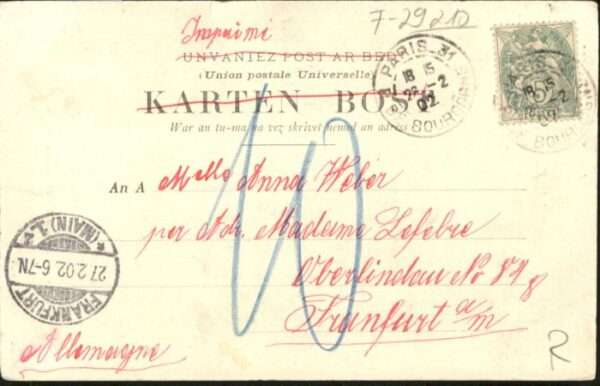 F-29210
Imprimé
UNVANIEZ POST AR BED
(Union postale Universelle)
KARTEN BOST
War an tu-ma na vez skrivet nemed an adres
PARIS-31
18 15
22-2
02
BOURDONNAIS
18 15
-2
02
An A Melle Anna Weber
per Adr. Madame Lefebre
Oberlindau No 87
Franfurt a/m
Allemagne
10
FRANKFURT
(MAIN) 1.
27.2.02.6-7N.
R